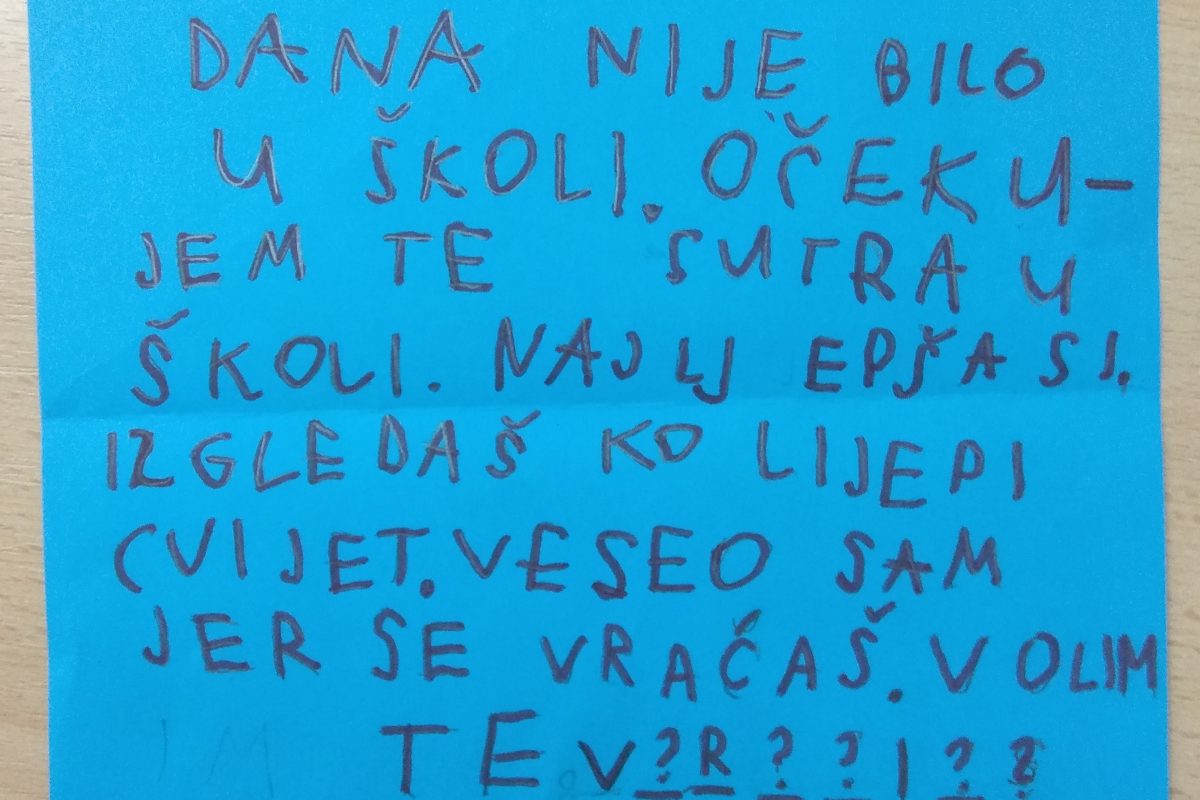 DANA NIJE BILO
U ŠKOLI. OČEKU-
JEM TE SUTRA U
ŠKOLI. NAJLJEPŠA SI.
IZGLEDAŠ KO LIJEPI
CVIJET. VESEO SAM
JER SE VRAĆAŠ. VOLIM
TE V?R??I??